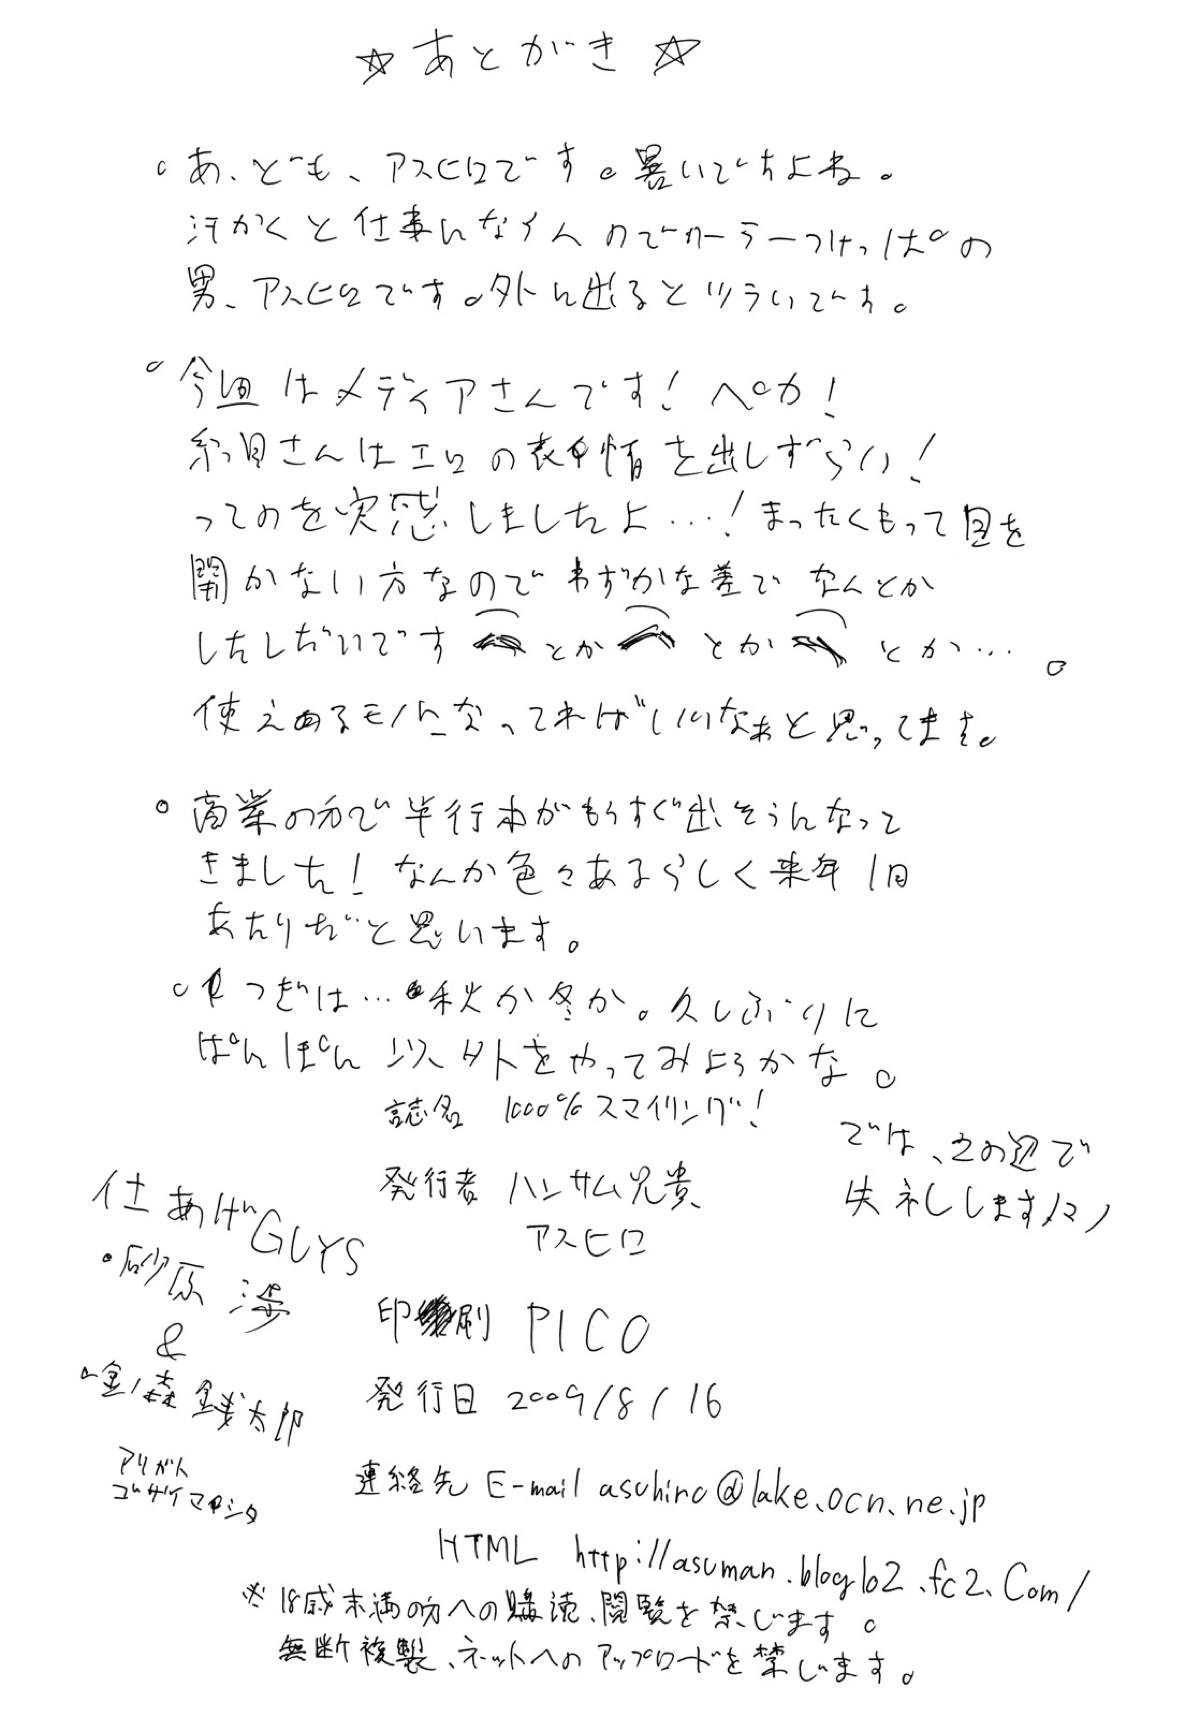 ☆あとがき☆
。あ、ども、アスヒロです。暑いですよね。
汗かくと仕事になイんのでクーラーつけっぱの
男、アスヒロです。外に出るとツラいです。
。今回はメディアさんです！ペカ！
糸目さんはエロの表情を出しずらい！
ってのを実感しましたよ…！まったくもって目を
開かない方なのでわずかな差でなんとか
したしだいです とか とか とか…。
使えあるモノになってればいいなぁと思ってます。
。商業の方で単行本がもうすぐ出そうんなって
きました！なんか色々あるらしく来年1月
あたりだと思います。
。つぎは…秋か冬か。久しぶりに
ぽんぽん以外をやってみようかな。
では、この辺で
失礼しますノシノ
誌名 1000%スマイリング！
発行者 ハンサム兄貴
アスヒロ
印刷 PICO
発行日 2009/8/16
連絡先 E-mail asuhiro@lake.ocn.ne.jp
HTML http://asuman.blog102.fc2.com/
※18歳未満の方への購読、閲覧を禁じます。
無断複製、ネットへのアップロードを禁じます。
仕あげGUYS
・砂原 渉
&
・金ノ森 銭太郎
アリガト
ゴザイマシタ